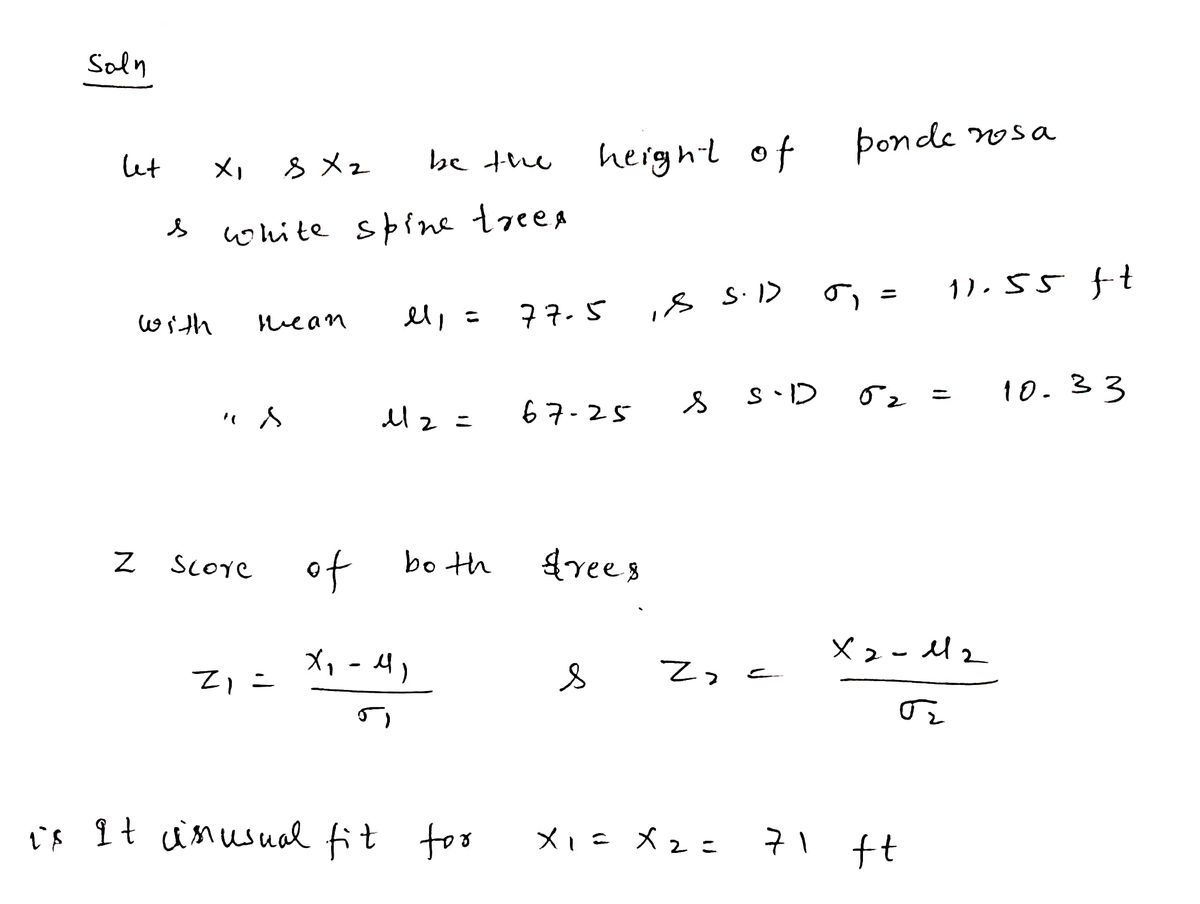 Soln
let X₁ & X₂ be the height of ponderosa
& white spine trees
with mean μ₁ = 77.5 , & S.D σ₁ = 11.55 ft
" & μ₂ = 67.25 & S.D σ₂ = 10.33
Z score of both trees
Z₁ = (X₁ - μ₁)/σ₁ & Z₂ = (X₂ - μ₂)/σ₂
is it unusual fit for X₁ = X₂ = 71 ft